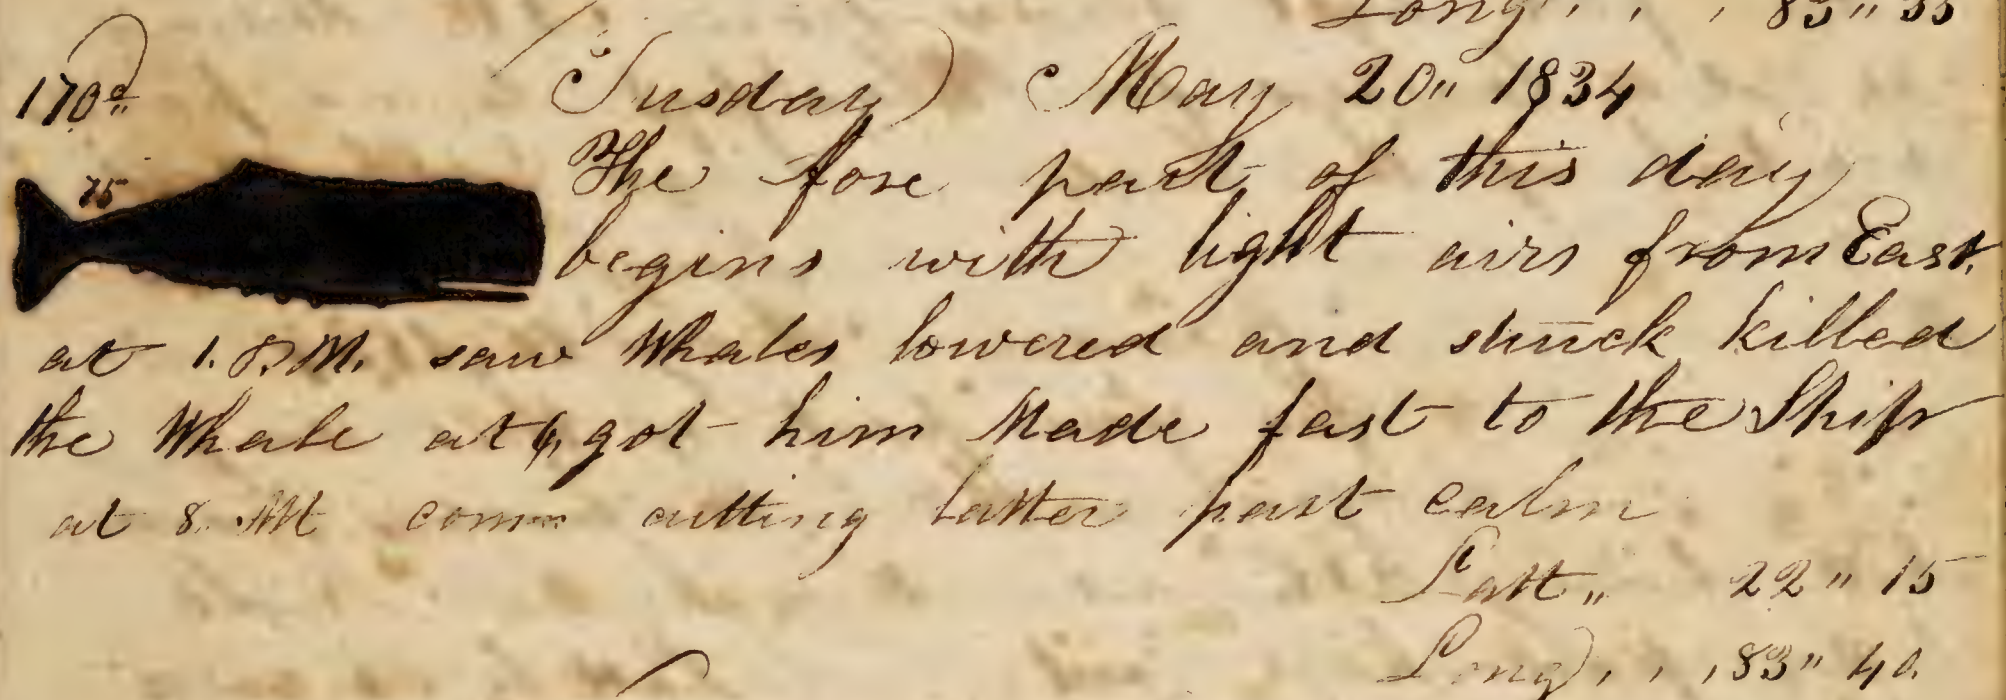 Long , , , 83 " 35
170d Tusday May 20 " 1834
The fore part of this day
75
begins with light airs from East.
at 1. P.M. saw Whales lowered and struck killed
the Whale at 6, got him Made fast to the Ship
at 8. M comm cutting latter part calm
Latt " 22 " 15
Long , , , 83 " 40